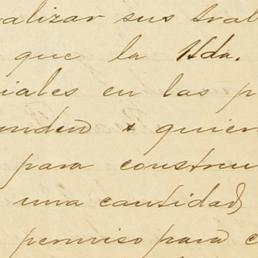 alizar sus tra
que la Hda.
iales en las p
quien
para constru
una cantidad
permiso para c